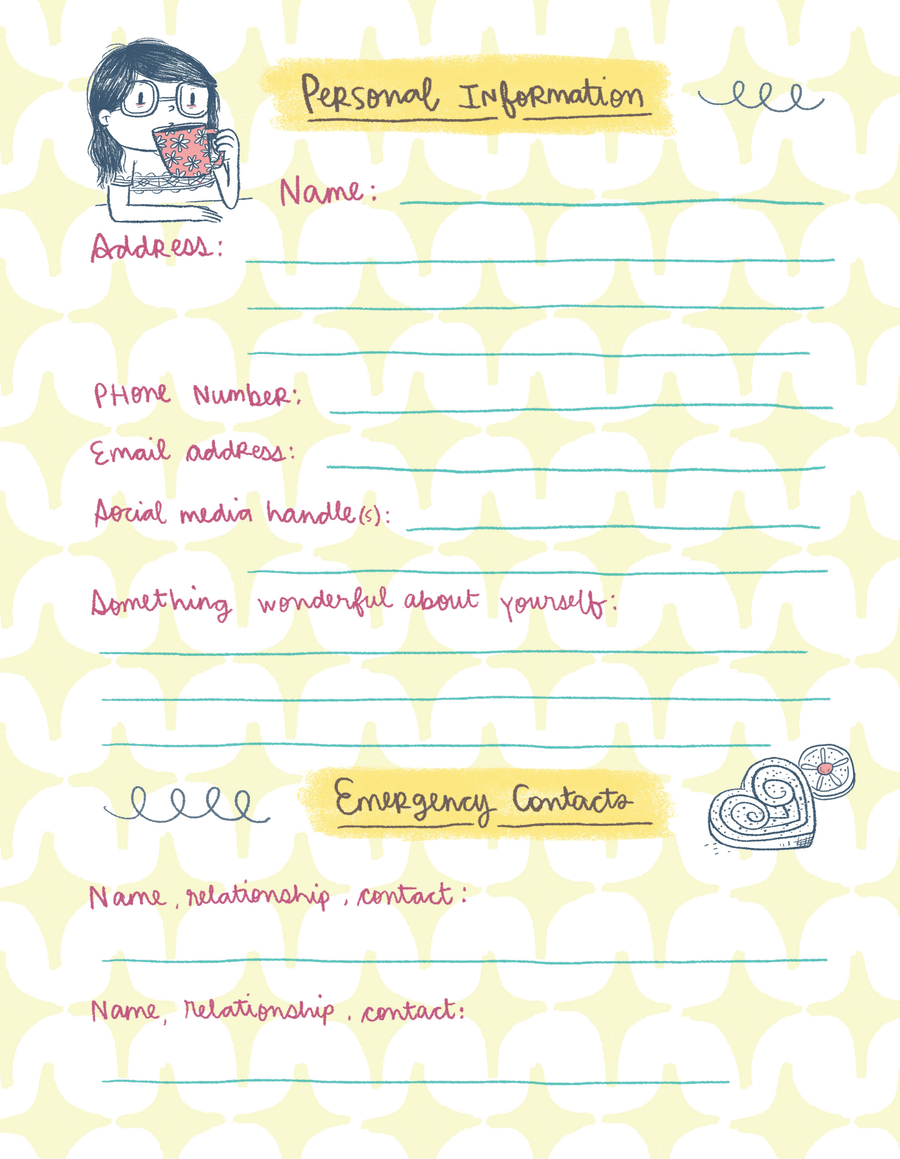 Personal Information
Name:
Address:
Phone Number:
Email address:
Social media handle(s):
Something wonderful about yourself:
Emergency Contacts
Name, relationship, contact:
Name, relationship, contact: